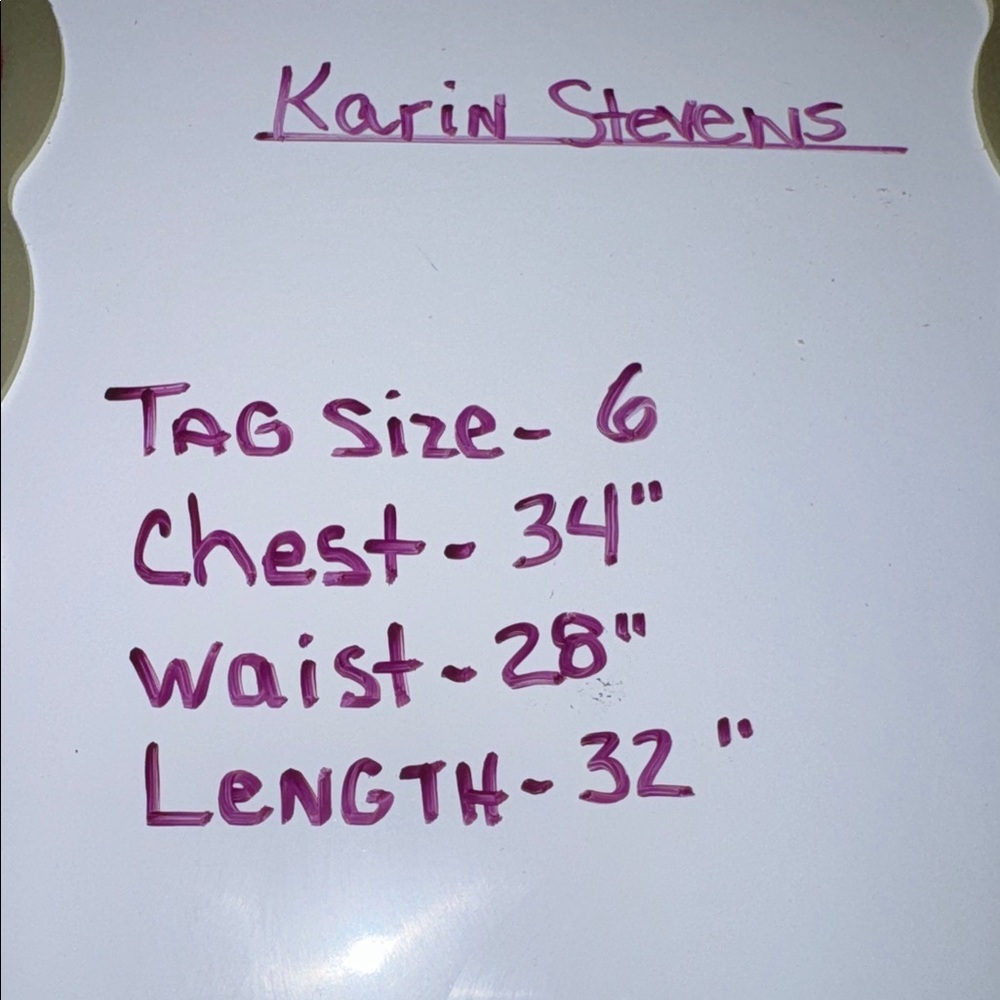 Karin Stevens
TAG Size- 6
Chest- 34"
Waist- 28"
LeNGTH- 32"